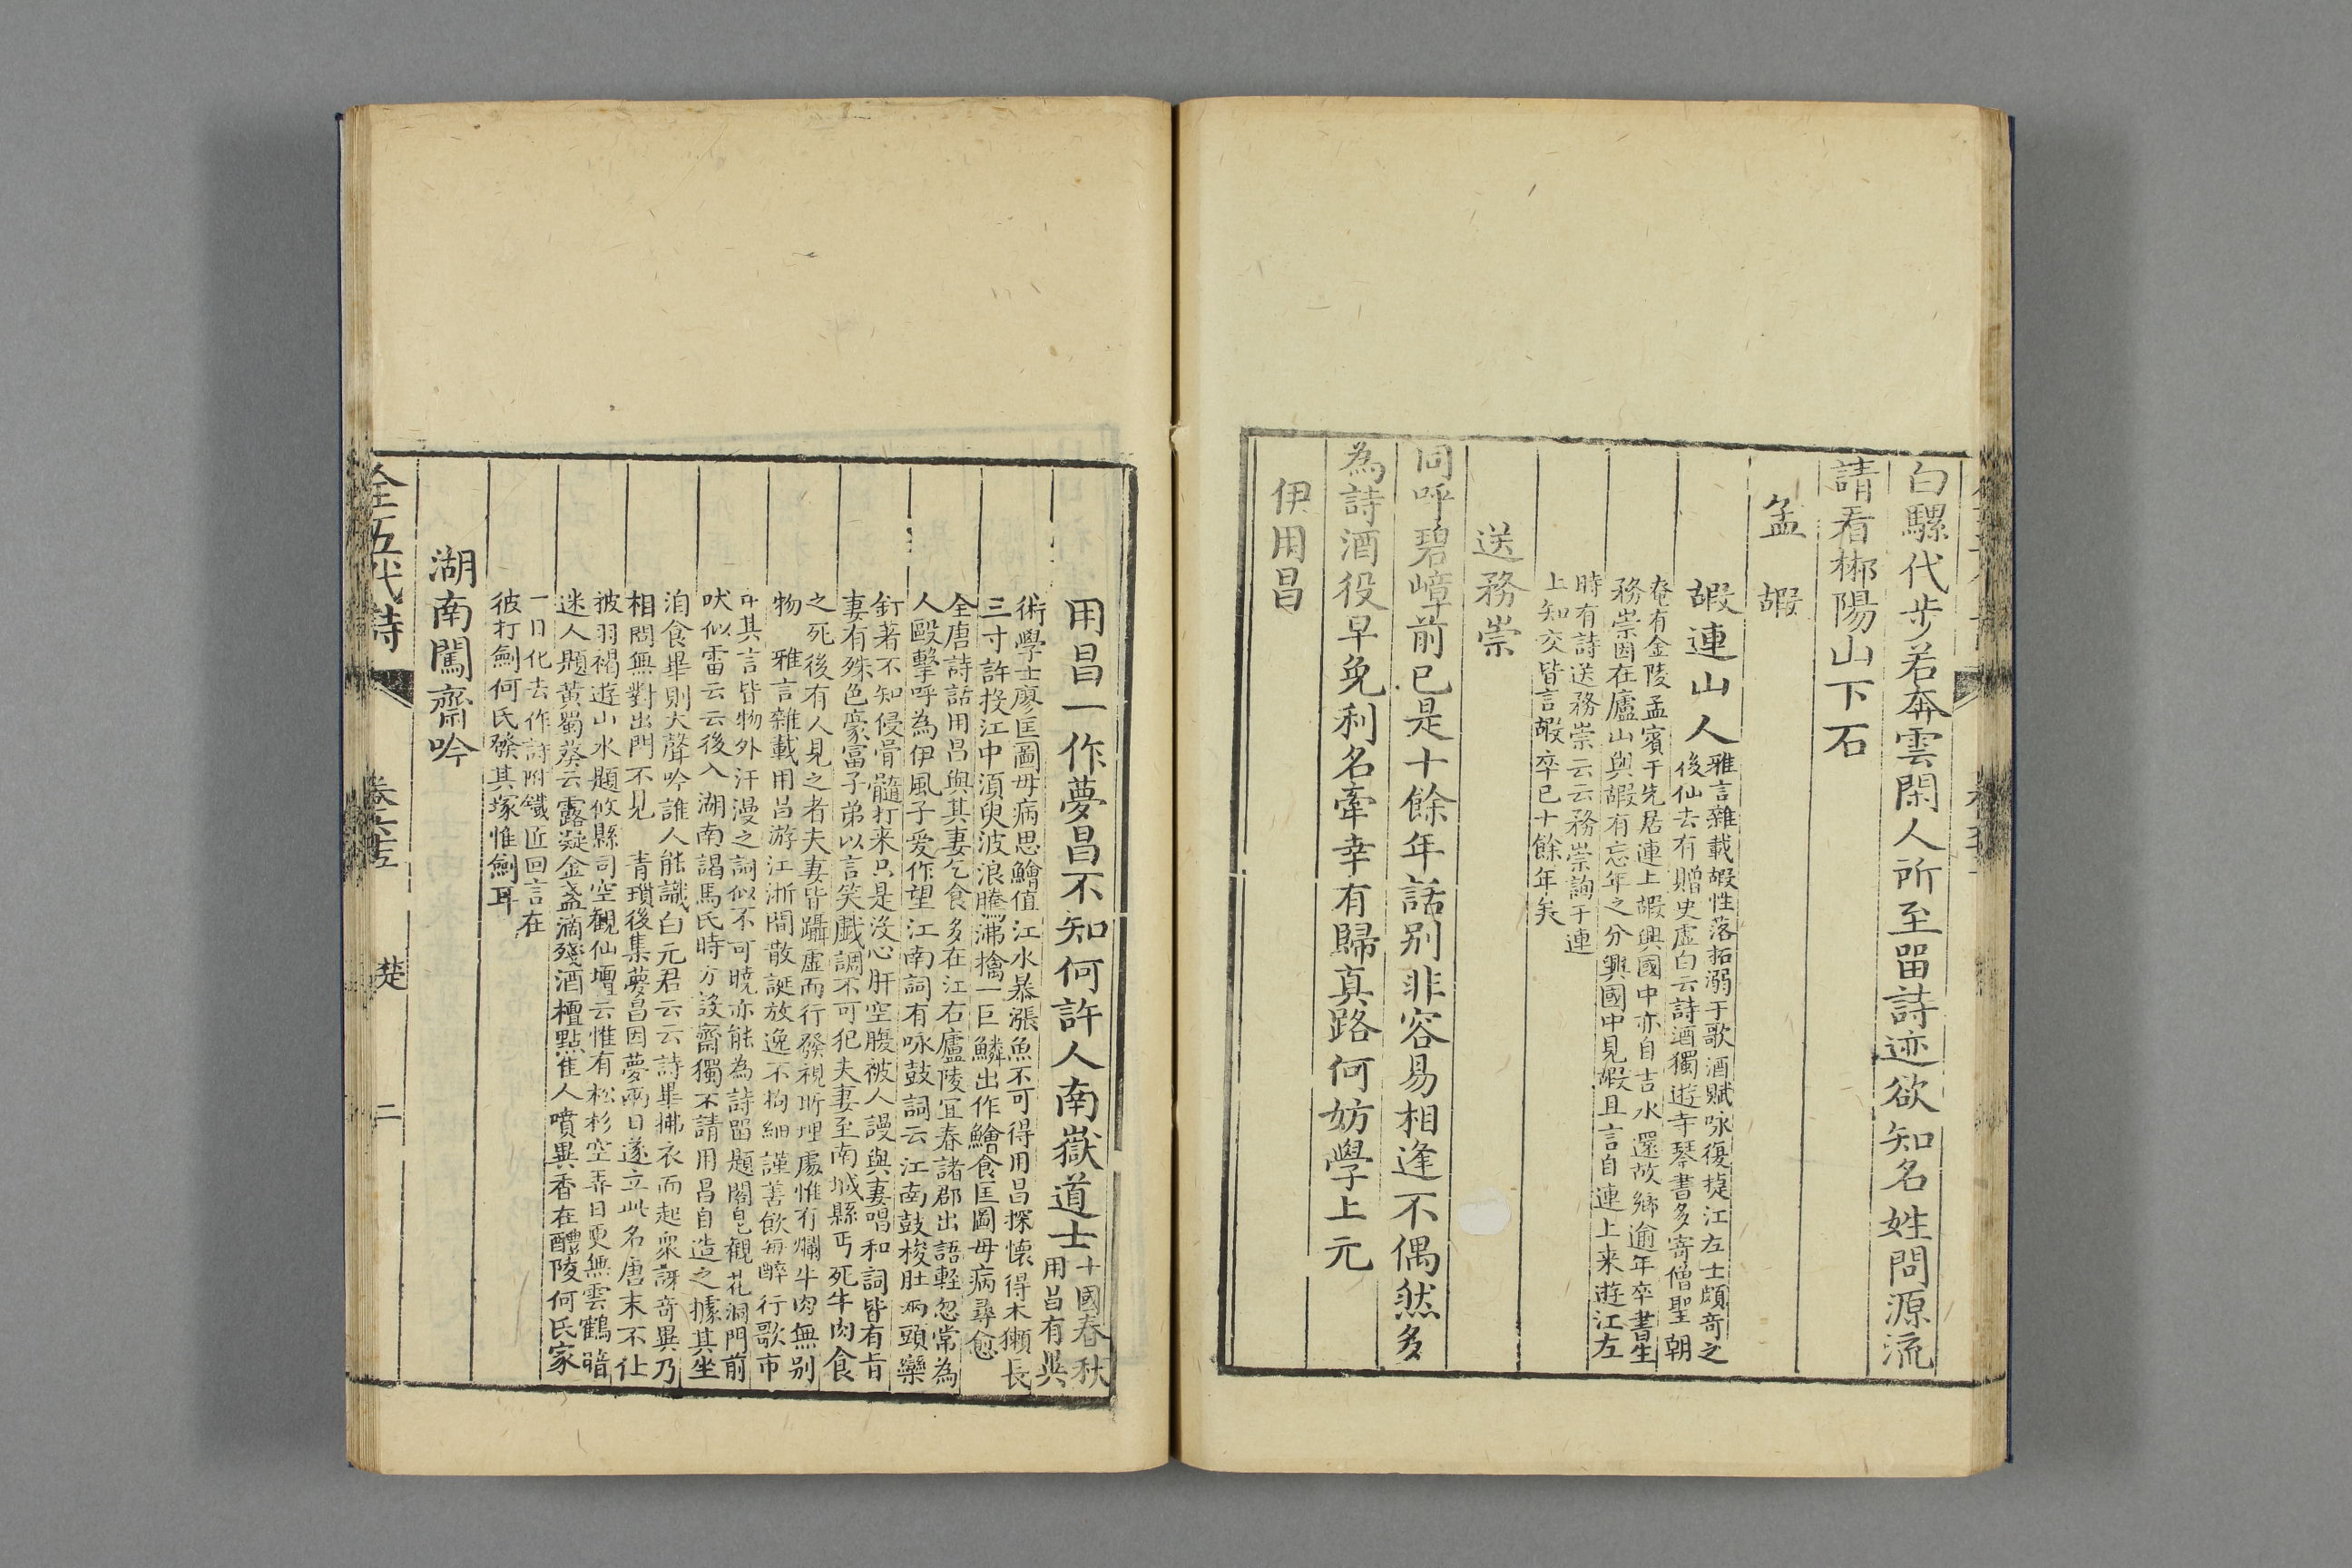 白騾代步若奔雲閑人所至留詩迹欲知名姓問源流
請看郴陽山下石
孟嘏
嘏連山人
雅言雜載嘏性落拓溺于歌酒賦咏復捷江左士頗奇之
後仙去有贈史虛白云詩酒獨遊寺琴書多寄僧聖朝
菴有金陵孟賓于先居連上嘏興國中亦自吉水還故鄉逾年卒書生
務崇因在廬山與嘏有忘年之分興國中見嘏且言自連上来遊江左
時有詩送務崇云云務崇詢于連
上知交皆言嘏卒已十餘年矣
送務崇
同呼碧嶂前已是十餘年話别非容易相逢不偶然多
為詩酒役早免利名牽幸有歸真路何妨學上元
伊用昌
用昌一作夢昌不知何許人南嶽道士
十國春秋
用昌有異
術學士廖匡圖母病思鱠值江水暴漲魚不可得用昌探懷得木獺長
三寸許投江中須臾波浪騰沸擒一巨鱗出作鱠食匡圖母病尋愈
全唐詩話用昌與其妻乞食多在江右廬陵宜春諸郡出語輕忽常為
人毆擊呼為伊風子爱作望江南詞有咏鼓詞云江南鼓梭肚兩頭欒
釘著不知侵骨髓打来只是没心肝空腹被人謾與妻唱和詞皆有旨
妻有殊色豪富子弟以言笑戲調不可犯夫妻至南城縣丐死牛肉食
之死後有人見之者夫妻皆躡虛而行發視所埋處惟有爛牛肉無别
物　雅言雜載用昌游江浙間散誕放逸不拘細謹善飲每醉行歌市
中其言皆物外汗漫之詞似不可曉亦能為詩留題閣皂觀花洞門前
吠似雷云云後入湖南謁馬氏時方設齋獨不請用昌自造之據其坐
洎食畢則大聲吟誰人能識白元君云云詩畢拂衣而起衆訝竒異乃
相問無對出門不見　青瑣後集夢昌因夢兩日遂立此名唐末不仕
披羽褐遊山水題攸縣司空觀仙壇云惟有松杉空弄日更無雲鶴暗
迷人題黃蜀葵云露凝金盞滴殘酒檀點隹人噴異香在醴陵何氏家
一日化去作詩附鐵匠回言在
彼打劍何氏發其塚惟劍耳
湖南闖齋吟
全五代詩　卷六十五　楚　二